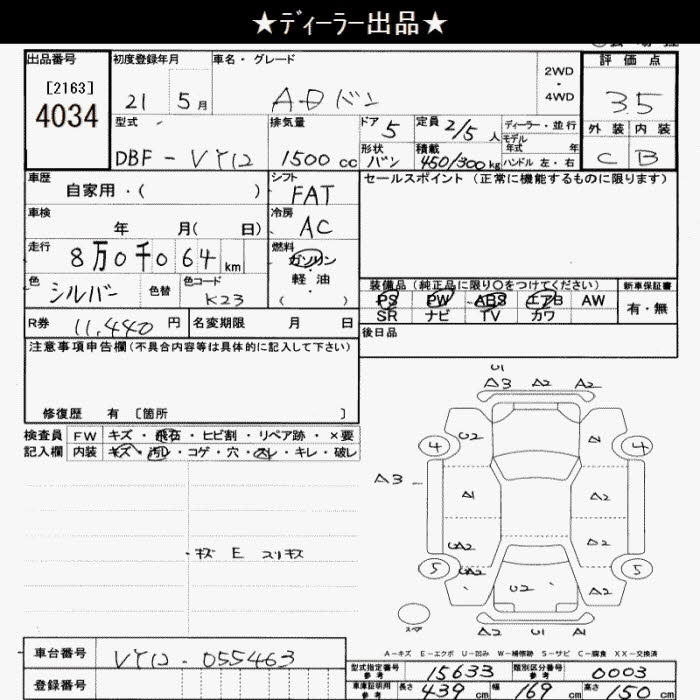 ★ディーラー出品★
出品番号
[2163]
4034
初度登録年月
21 5月
車名・グレード
ADバン
2WD
・
4WD
評価点
3.5
外装 内装
C B
型式
DBF-VY12
排気量
1500 cc
ドア 5
形状 バン
定員 2/5 人
積載 450/300 kg
ディーラー・並行
モデル年式 年
ハンドル 左・右
車歴
自家用・( )
車検
年 月( 日)
走行
8万0千064 km
色 シルバー 色替
色コード K23
シフト FAT
冷房 AC
燃料
ガソリン
・
軽油
( )
セールスポイント (正常に機能するものに限ります)
装備品 (純正品に限り○をつけてください)
PS PW ABS エアB AW
SR ナビ TV カワ
新車保証書
有・無
R券 11,440 円
名変期限 月 日
後日品
注意事項申告欄(不具合内容等は具体的に記入して下さい)
修復歴 有 〔箇所 〕
検査員 FW キズ・飛石・ヒビ割・リペア跡・×要
記入欄 内装 キズ・汚レ・コゲ・穴・スレ・キレ・破レ
・キズ E スリキズ
U1
A3 A2 A2
4 U2 A1 4
A3
A1 A2
UA2 A2
5 UA2 U2 A2 5
スペア
U2 U1 A2
A-キズ E-エクボ U-凹み W-補修跡 S-サビ C-腐食 XX-交換済
車台番号 VY12-055463
登録番号
型式指定番号 参考 15633
類別区分番号 参考 0003
車庫証明用 参考 長さ 439 cm 幅 169 cm 高さ 150 cm